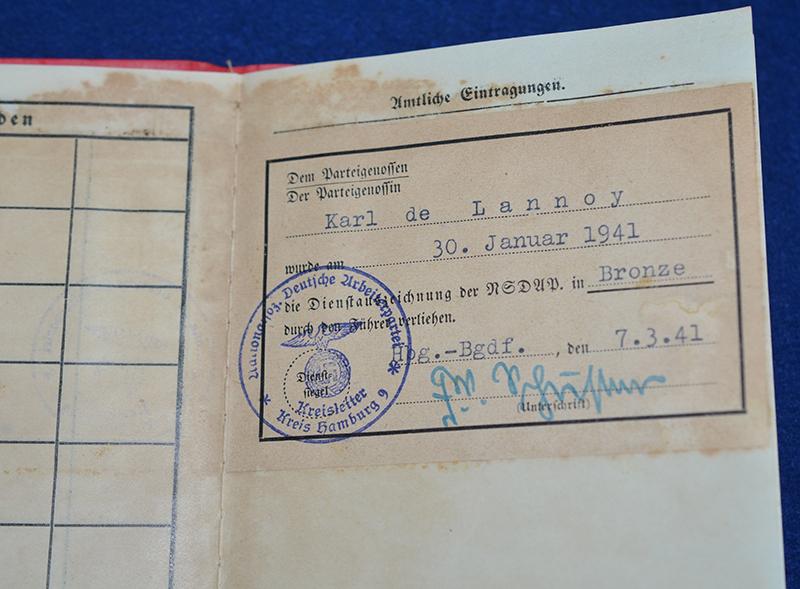 den
Amtliche Eintragungen.
Dem Parteigenossen
Der Parteigenossin
Karl de Lannoy
wurde am 30. Januar 1941
die Dienstauszeichnung der NSDAP. in Bronze
durch den Führer verliehen.
Hbg.-Bgdf. , den 7.3.41
(Unterschrift)
Dienst-
siegel
National-soz. Deutsche Arbeiterpartei
Kreisleiter
* Kreis Hamburg 9 *